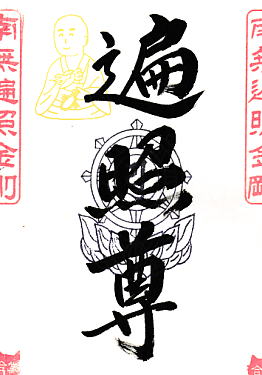 南無遍照金剛
遍照尊
南無遍照金剛